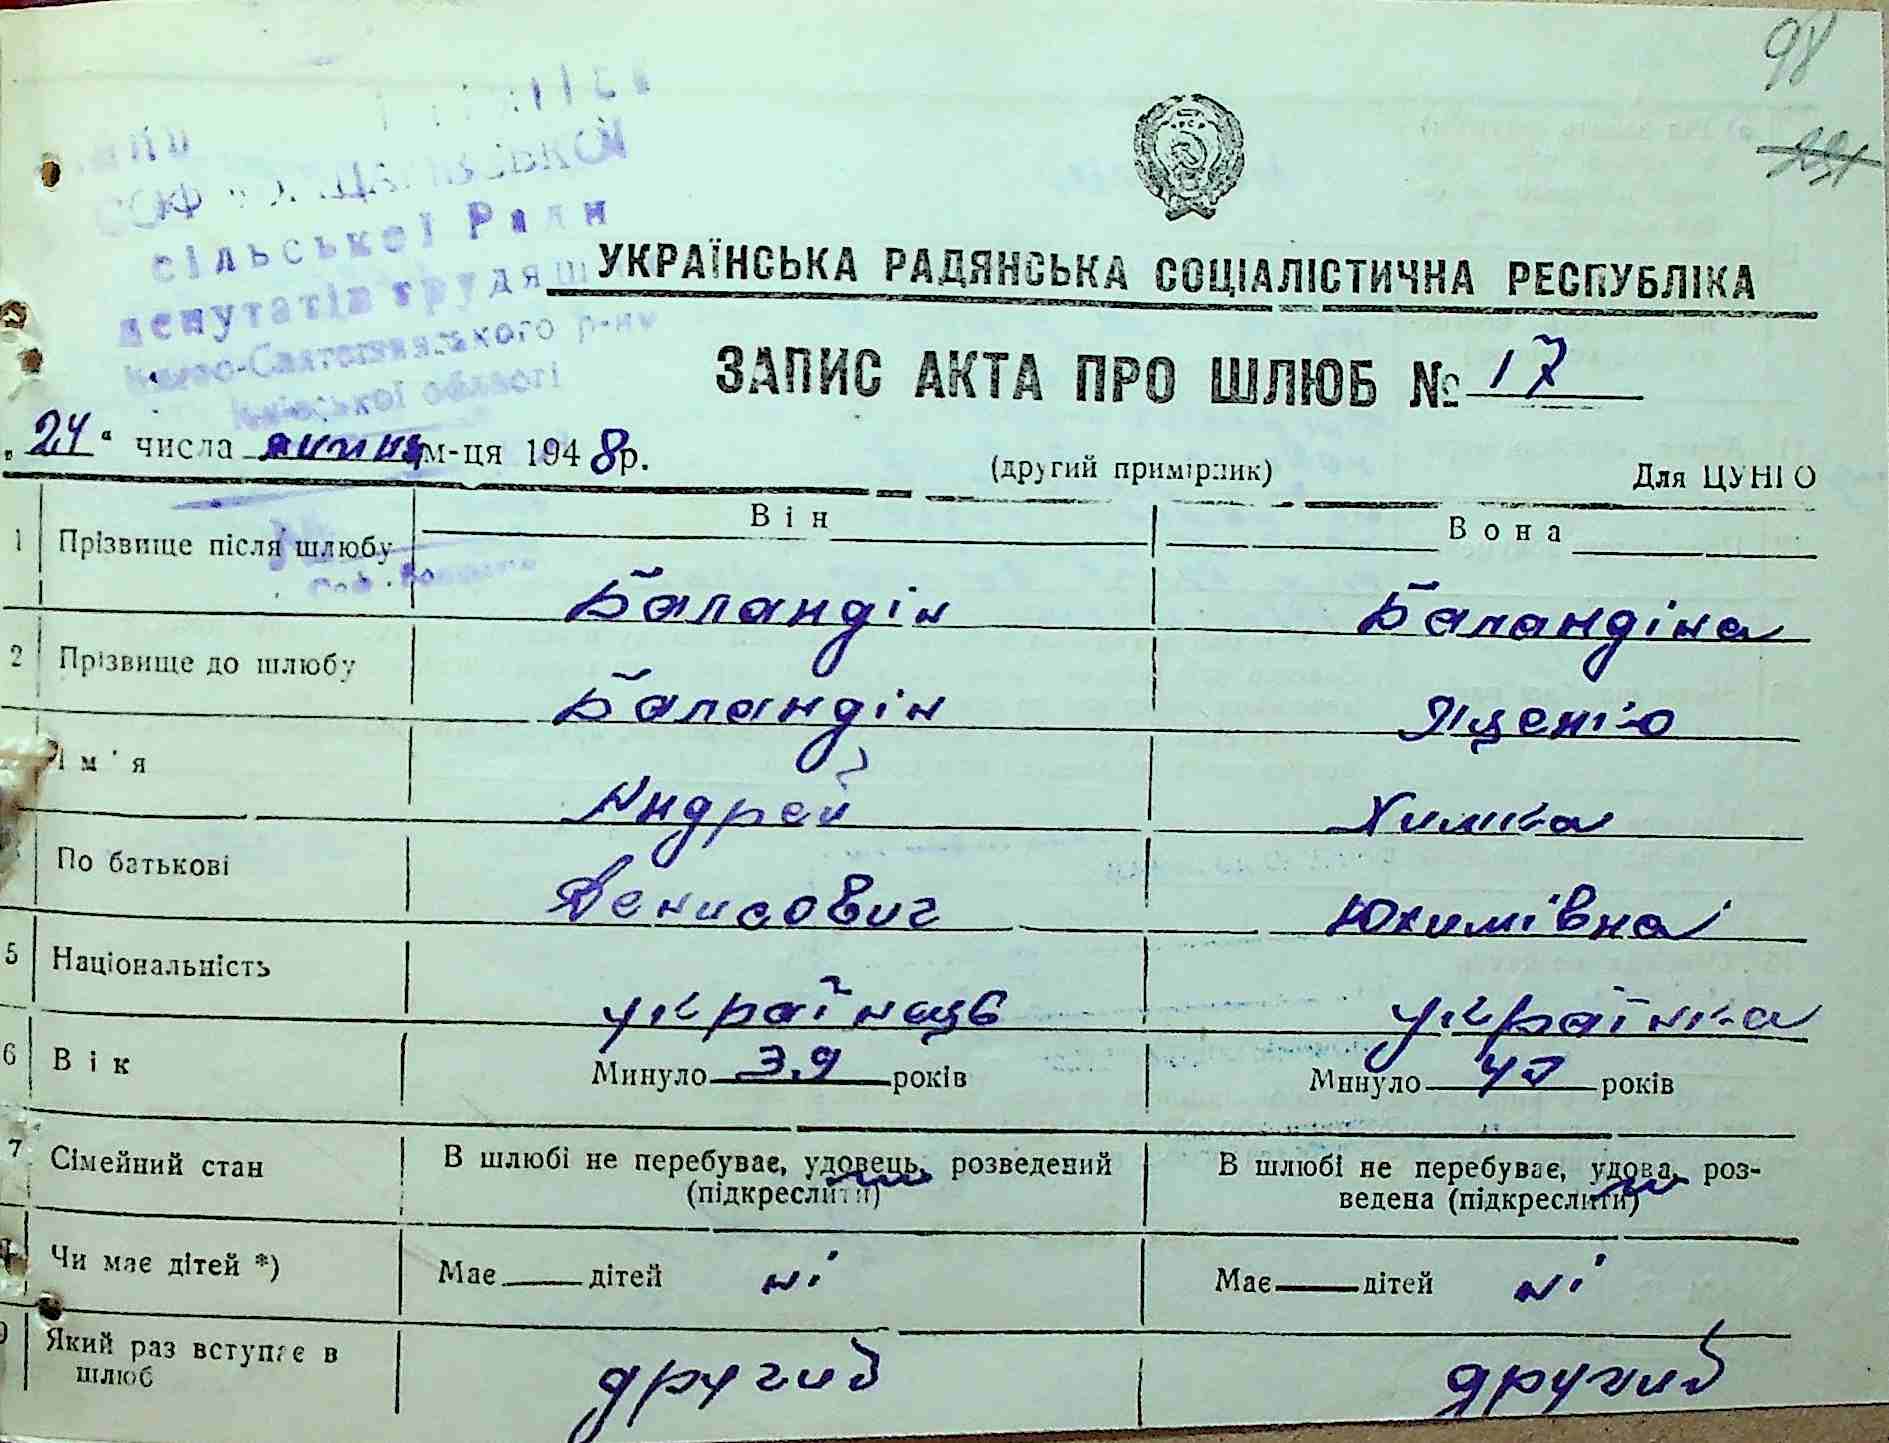 98
СОФ
сільської Ради
депутатів трудящ
Києво-Святошинського р-ну
Київської області
УКРАЇНСЬКА РАДЯНСЬКА СОЦІАЛІСТИЧНА РЕСПУБЛІКА
ЗАПИС АКТА ПРО ШЛЮБ № 17
„24“ числа липня м-ця 1948 р.
(другий примірник) Для ЦУНГО
Він Вона
1 Прізвище після шлюбу Баландін Баландіна
2 Прізвище до шлюбу Баландін Яценко
Ім'я Андрей Химка
По батькові Денисович Юхимівна
5 Національність українець українка
6 Вік Минуло 39 років Минуло 47 років
7 Сімейний стан В шлюбі не перебуває, удовець, розведений В шлюбі не перебуває, удова, роз-
(підкреслити) ведена (підкреслити)
Чи має дітей *) Має дітей ні Має дітей ні
9 Який раз вступає в другий другий
шлюб